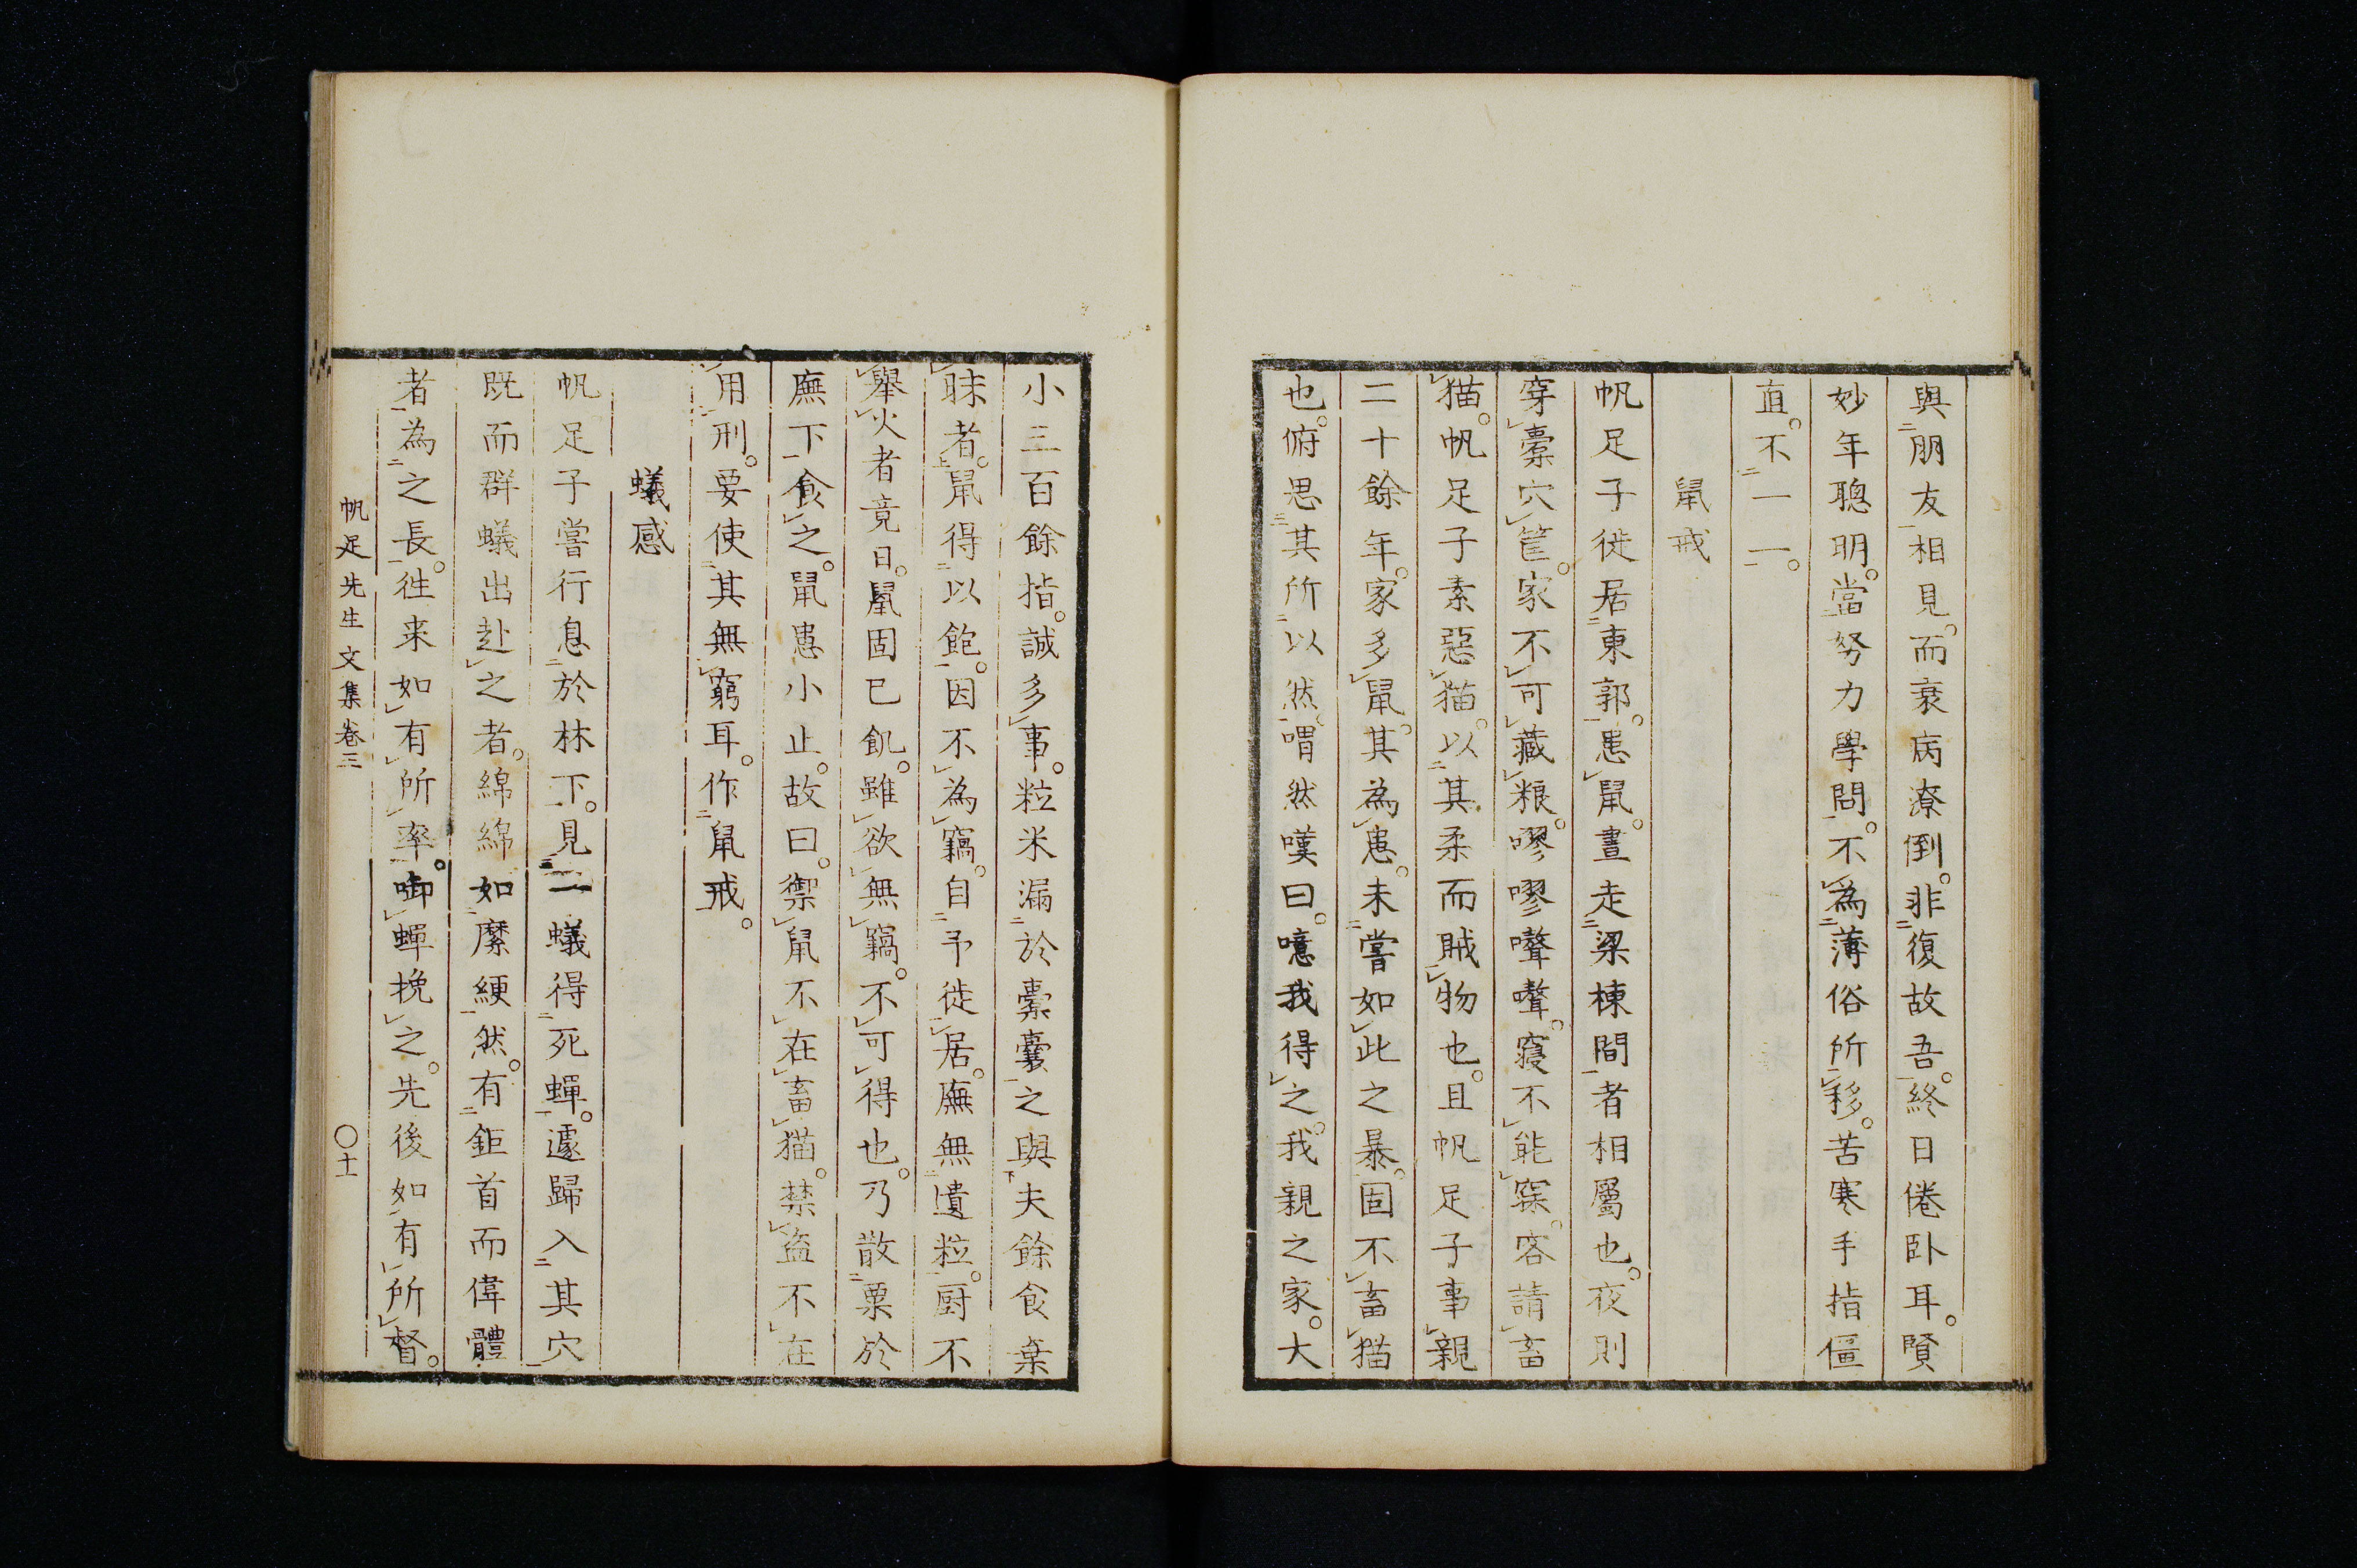 與朋友相見。而衰病潦倒。非復故吾。終日倦臥耳。賢
妙年聰明。當努力學問。不為薄俗所移。苦寒手指僵
直。不一一。
鼠戒
帆足子徙居東郭。患鼠。晝走梁棟間者相屬也。夜則
穿橐穴筐。家不可藏粮。嘐嘐嗸嗸。寢不能寐。客請畜
猫。帆足子素惡猫。以其柔而賊物也。且帆足子事親
二十餘年。家多鼠。其為患。未嘗如此之暴。固不畜猫
也。俯思其所以然。喟然嘆曰。噫我得之。我親之家。大
小三百餘指。誠多事。粒米漏於橐囊之與夫餘食棄
昧者。鼠得以飽。因不為竊。自予徙居。廡無遺粒。厨不
舉火者竟日。鼠固已飢。雖欲無竊。不可得也。乃散粟於
廡下食之。鼠患小止。故曰。禦鼠不在畜猫。禁盜不在
用刑。要使其無窮耳。作鼠戒。
蟻感
帆足子嘗行息於林下。見一蟻得死蟬。遽歸入其穴
既而群蟻出赴之者。綿綿如縻綆然。有鉅首而偉體
者為之長。往来如有所率。啣蟬挽之。先後如有所督。
帆足先生文集卷三 〇十一